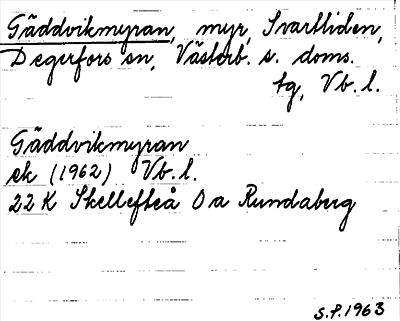 Gäddvikmyran, myr, Svartliden,
Degerfors sn, Västerb. s. doms.
tg, Vb. l.
Gäddvikmyran
ek (1962) Vb. l.
22 K Skellefteå 0 a Rundaberg
S.P. 1963